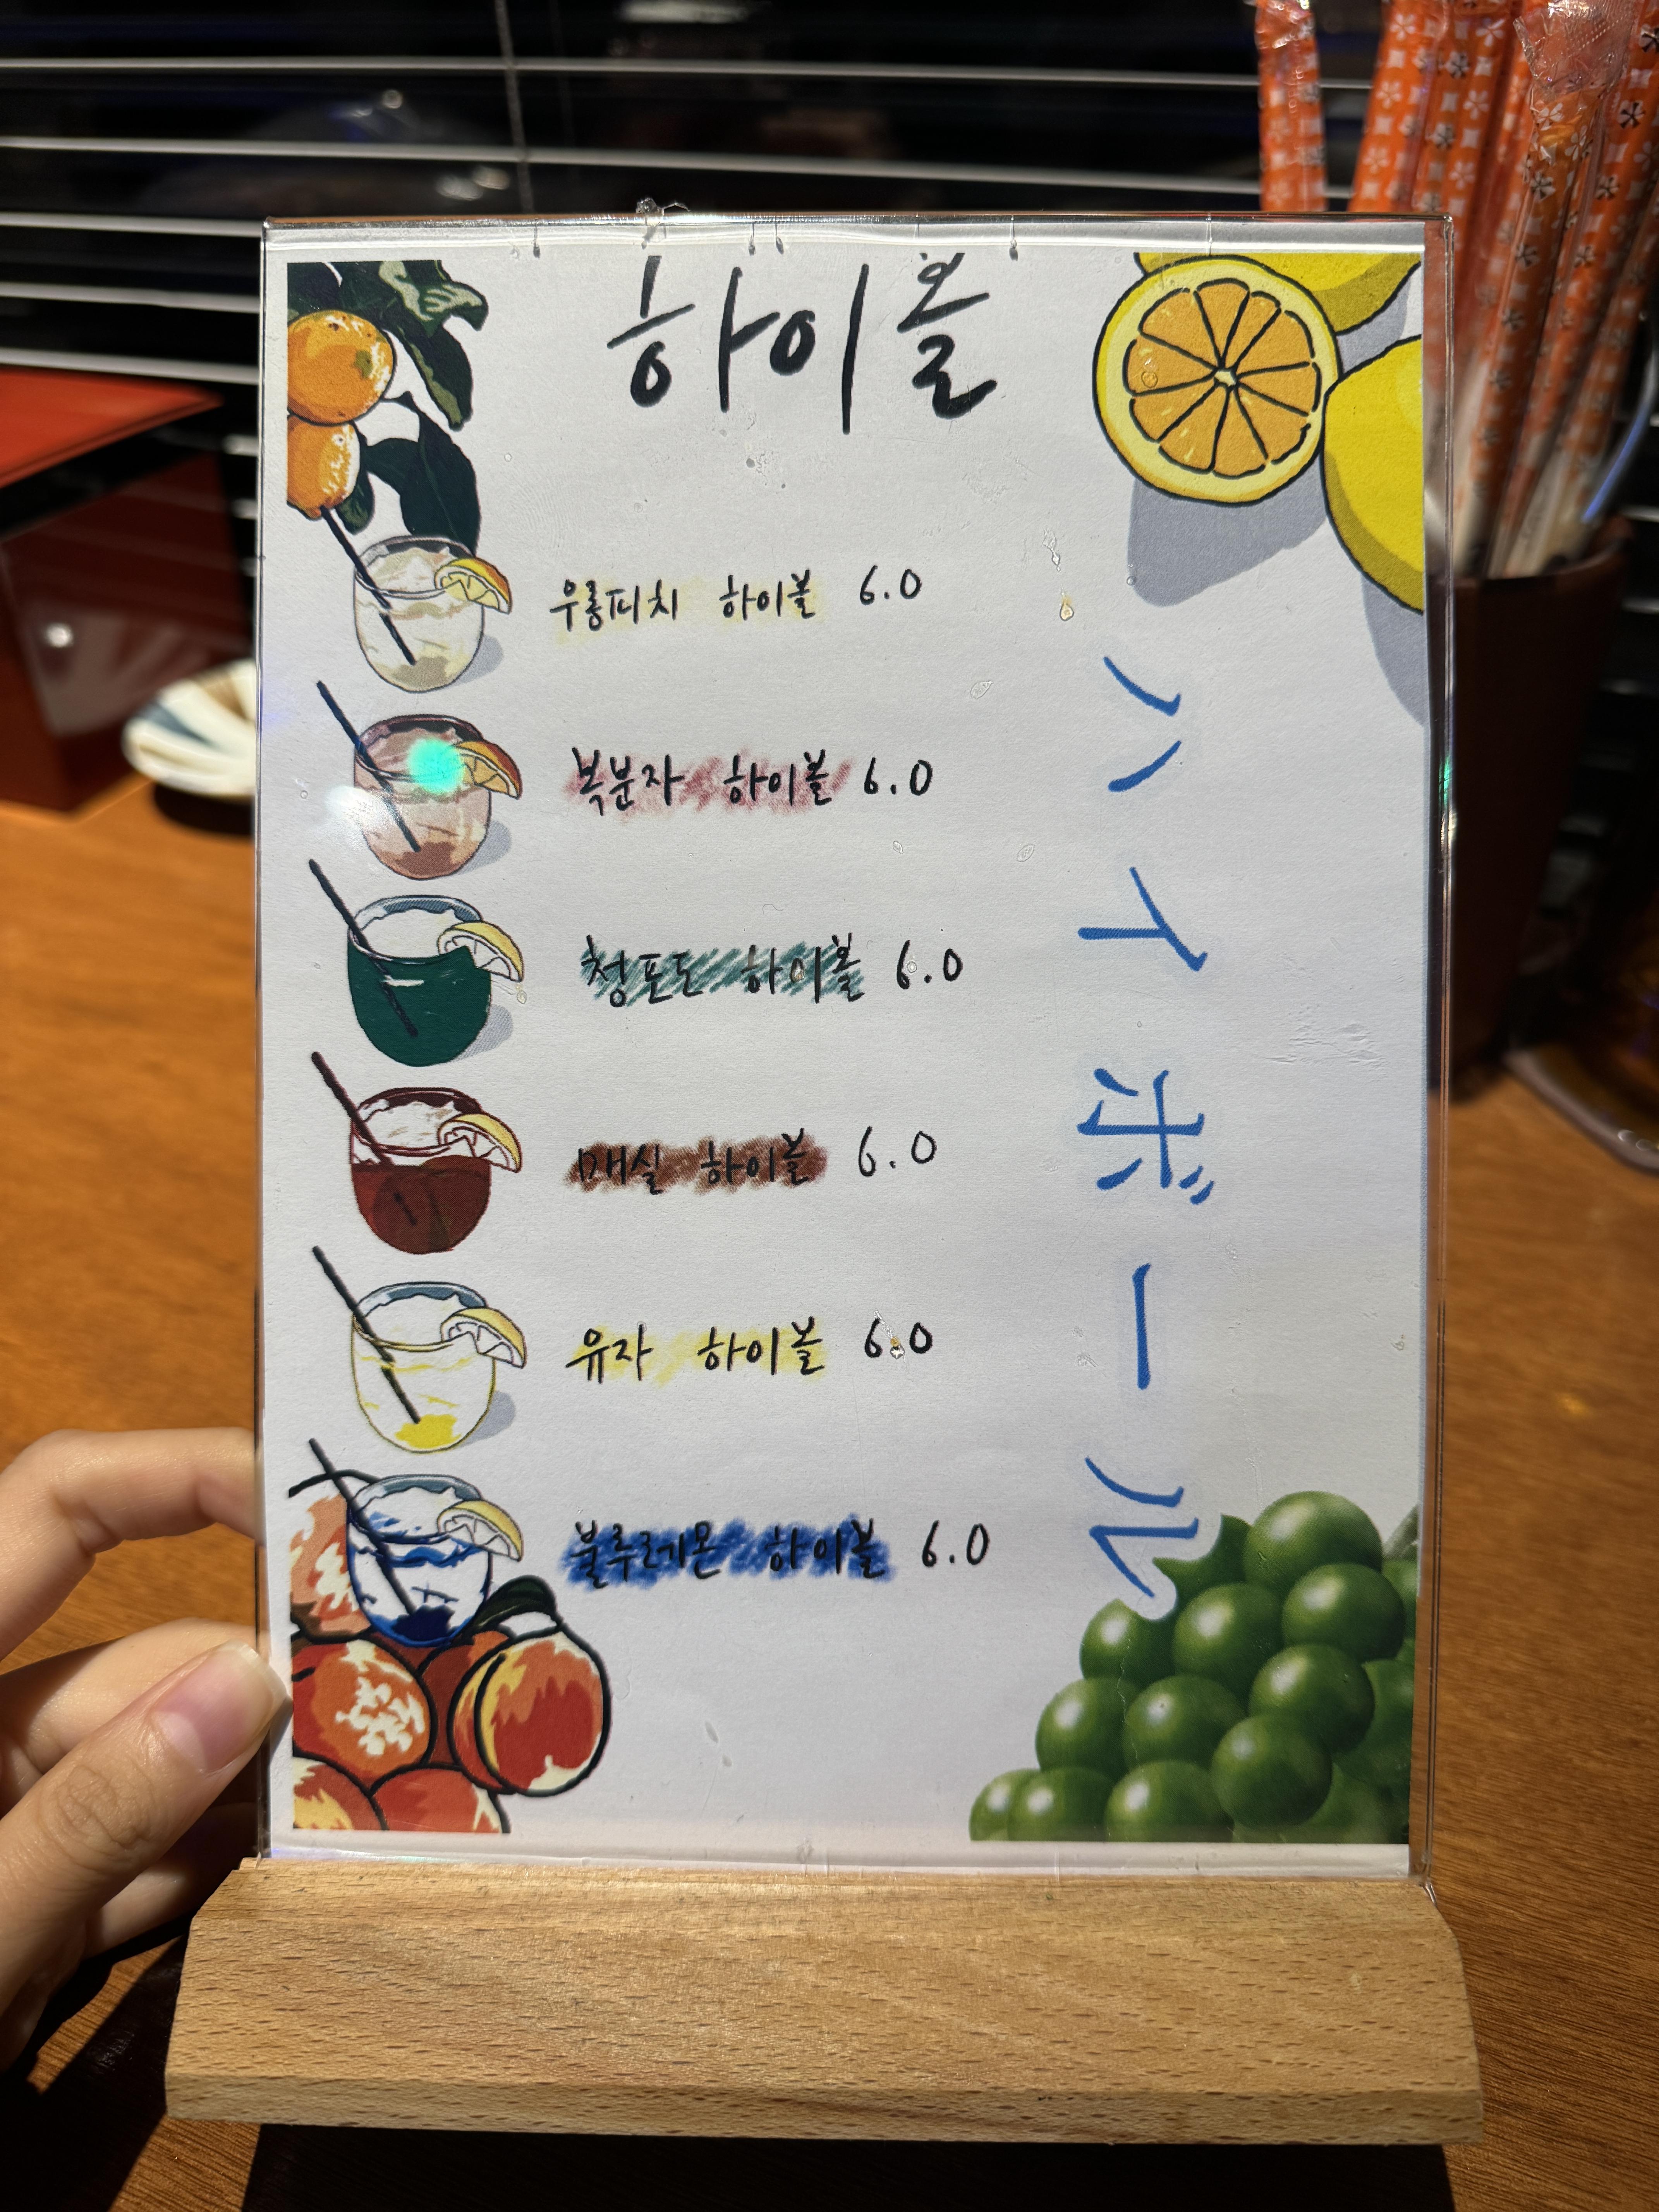 하이볼
우롱피치 하이볼 6.0
복분자 하이볼 6.0
청포도 하이볼 6.0
매실 하이볼 6.0
유자 하이볼 6.0
블루레몬 하이볼 6.0
ハイボール